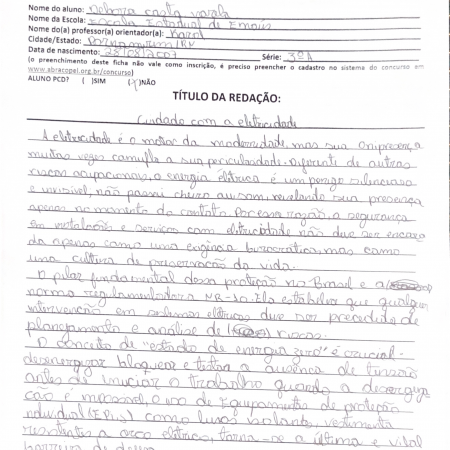 Nome do aluno: Debora Costa
Nome da Escola: Escola Estadual de Emaús
Nome do(a) professor(a) orientador(a): Karol
Cidade/Estado: Parnamirim/RN
Data de nascimento: 23/08/2007 Série: 3ª A
(o preenchimento deste ficha não vale como inscrição, é preciso preencher o cadastro no sistema do concurso em
www.abracopel.org.br/concurso)
ALUNO PCD? ( )SIM ( )NÃO
TÍTULO DA REDAÇÃO:
Cuidado com a eletricidade
A eletricidade é o motor da modernidade, mas sua onipresença
muitas vezes camufla a sua periculosidade. diferente de outros
riscos ocupacionais, a energia elétrica é um perigo silencioso
e invisível, não possui cheiro ou som, revelando sua presença
apenas no momento do contato. Por essa razão, a segurança
em instalações e serviços com eletricidade não deve ser encara
da apenas como uma exigência burocrática, mas como
uma cultura de preservação da vida.
O pilar fundamental dessa proteção no Brasil e a
norma regulamentadora NR-10. Ela estabelece que qualquer
intervenção em sistemas elétricos deve ser precedida de
planejamento e análise de riscos.
O conceito de "estado de energia zero" é crucial.
desenergizar bloquear e testar a ausência de tensão
antes de iniciar o trabalho quando a desenergiza
ção é impossível, o uso de Equipamentos de proteção
individual (EPIs) como luvas isolantes, vestimenta
resistentes a arco elétrico, torna-se a última e vital
barreira de defesa